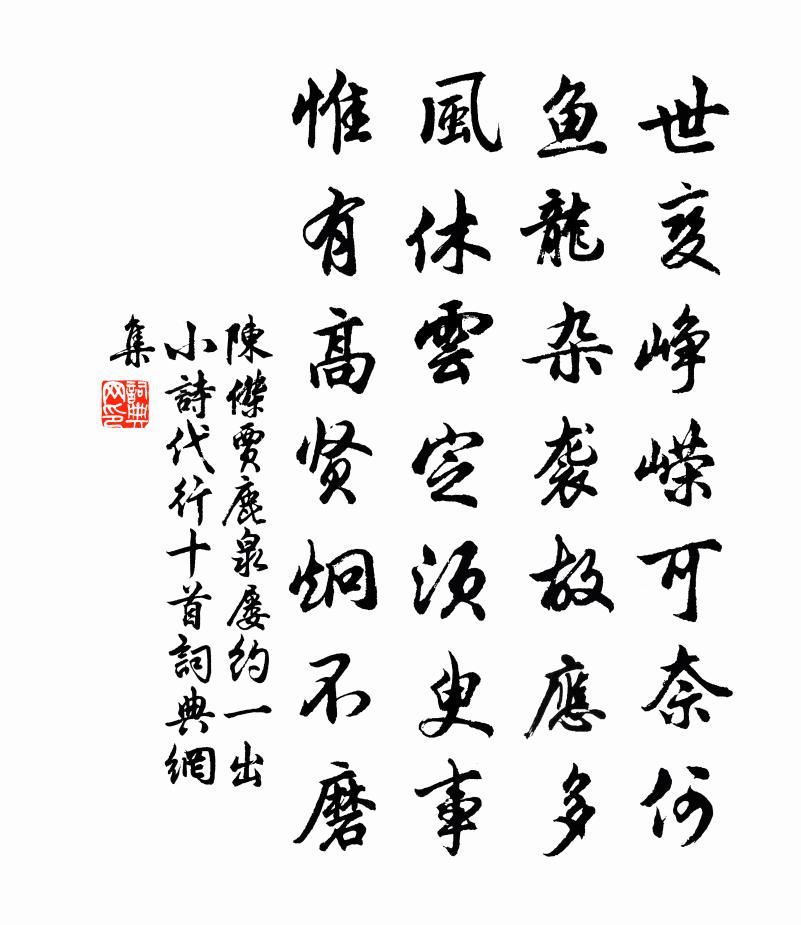 世変峥嵘可奈何
鱼龍杂袭故應多
風休雲定須臾事
惟有高贤炯不磨
陳傑賈鹿泉屡約一出
小詩代行十首詞典網
集
詞典
网印